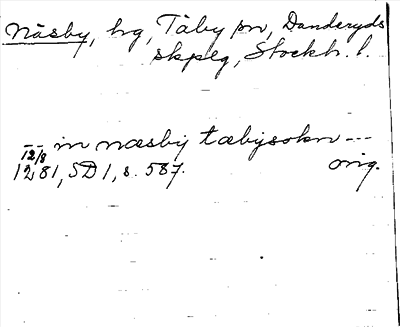 Näsby, hg, Täby sn, Danderyds
skplg, Stockh. l.
-- in næsby tæbysokn ---
12/8
1281, SD 1, s. 587. orig.